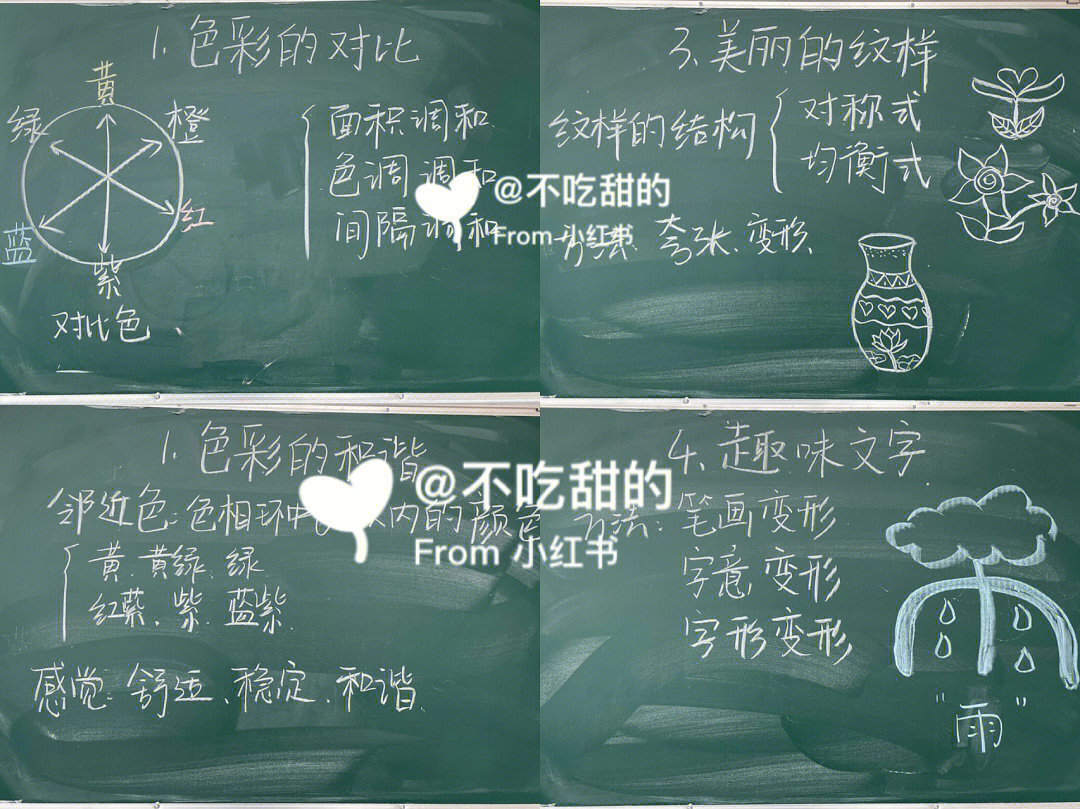 1.色彩的对比
黄
绿
橙
蓝
红
紫
对比色、
面积调和
色调调和
间隔调和
3.美丽的纹样
纹样的结构
对称式
均衡式
夸张、变形、
@不吃甜的
From 小红书
1.色彩的和谐
邻近色:色相环中 内的颜色
黄、黄绿、绿
红紫、紫、蓝紫
感觉:舒适、稳定、和谐、
@不吃甜的
From 小红书
4.趣味文字
方法:笔画变形
字意变形
字形变形
"雨"